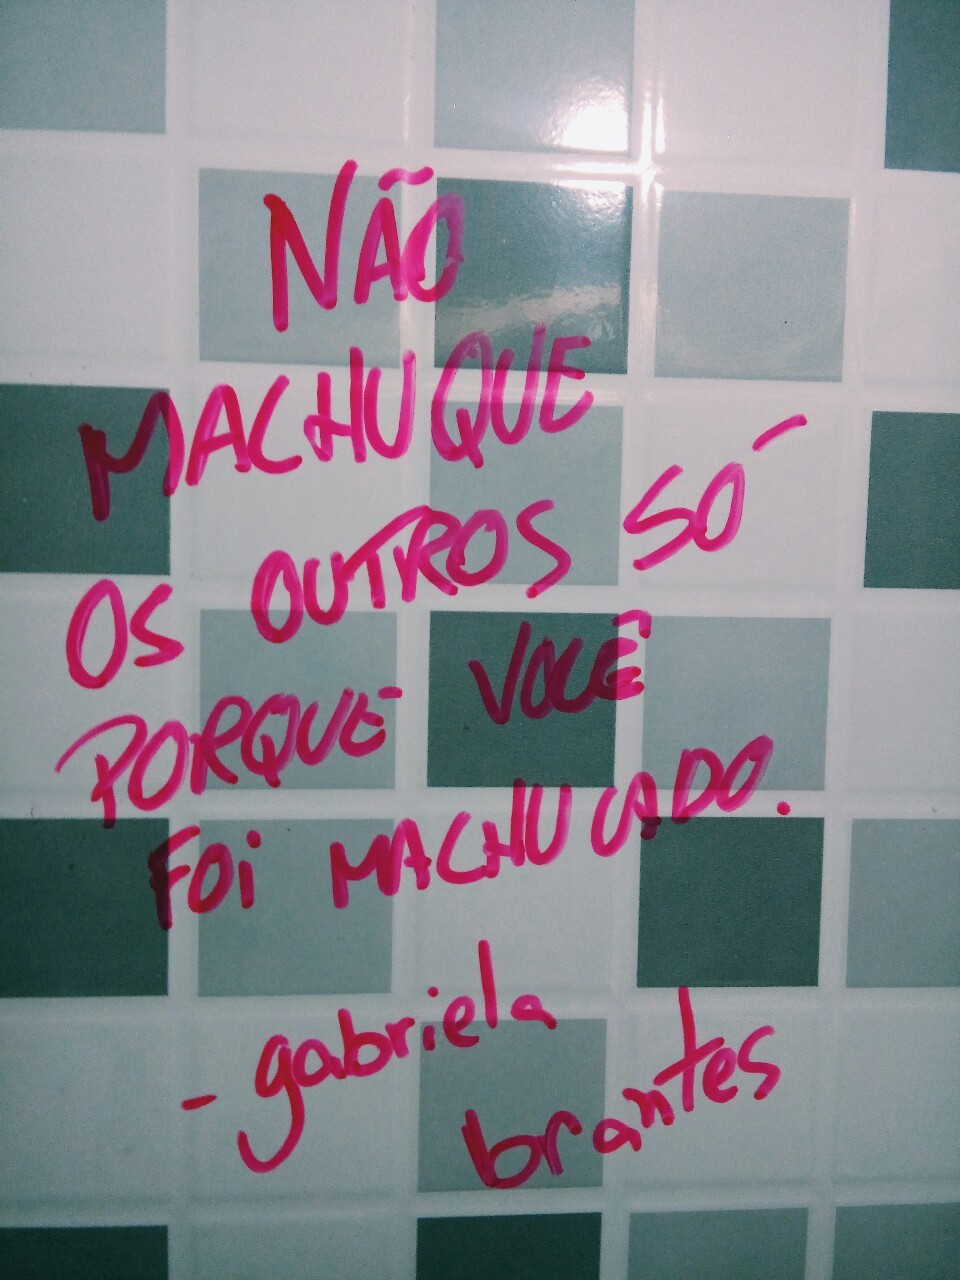 NÃO
MACHUQUE
OS OUTROS SÓ
PORQUE VOCÊ
FOi MACHUCADO.
- gabriela
brantes